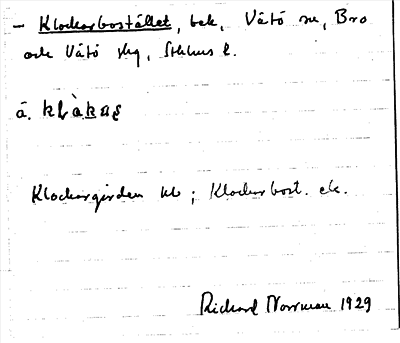 – Klockarbostället, bek, Vätö sn, Bro
och Vätö skg, Sthlms l.
å.
Klockargården kb ; Klockarbost. ek.
Richard Norrman 1929